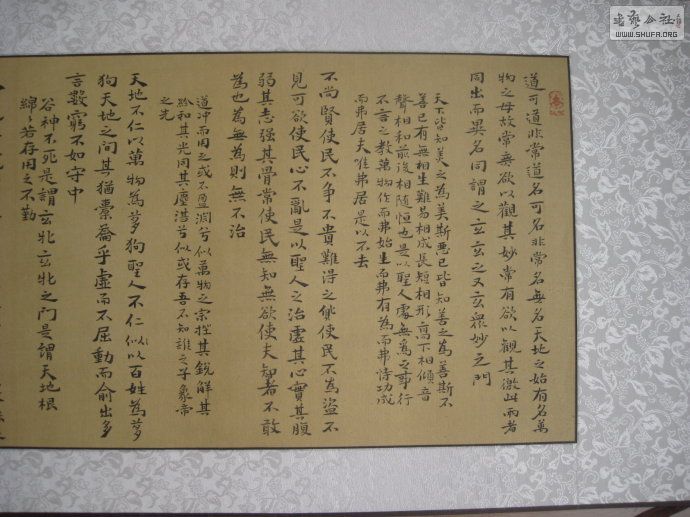 道可道非常道名可名非常名無名天地之始有名萬
物之母故常無欲以觀其妙常有欲以觀其徼此两者
同出而異名同謂之玄玄之又玄眾妙之門
天下皆知美之為美斯惡已皆知善之為善斯不
善已有無相生難易相成長短相形高下相傾音
聲相和前後相随恒也是以聖人處無為之事行
不言之教萬物作而弗始生而弗有為而弗恃功成
而弗居夫唯弗居是以不去
不尚賢使民不争不貴難得之貨使民不為盜不
見可欲使民心不亂是以聖人之治虛其心實其腹
弱其志强其骨常使民無知無欲使夫智者不敢
為也為無為則無不治
道冲而用之或不盈淵兮似萬物之宗挫其銳解其
紛和其光同其塵湛兮似或存吾不知誰之子象帝
之先
天地不仁以萬物為芻狗聖人不仁以百姓為芻
狗天地之间其猶橐龠乎虛而不屈動而俞出多
言數窮不如守中
谷神不死是謂玄牝玄牝之门是謂天地根
綿綿若存用之不勤
书艺公社
WWW.SHUFA.ORG